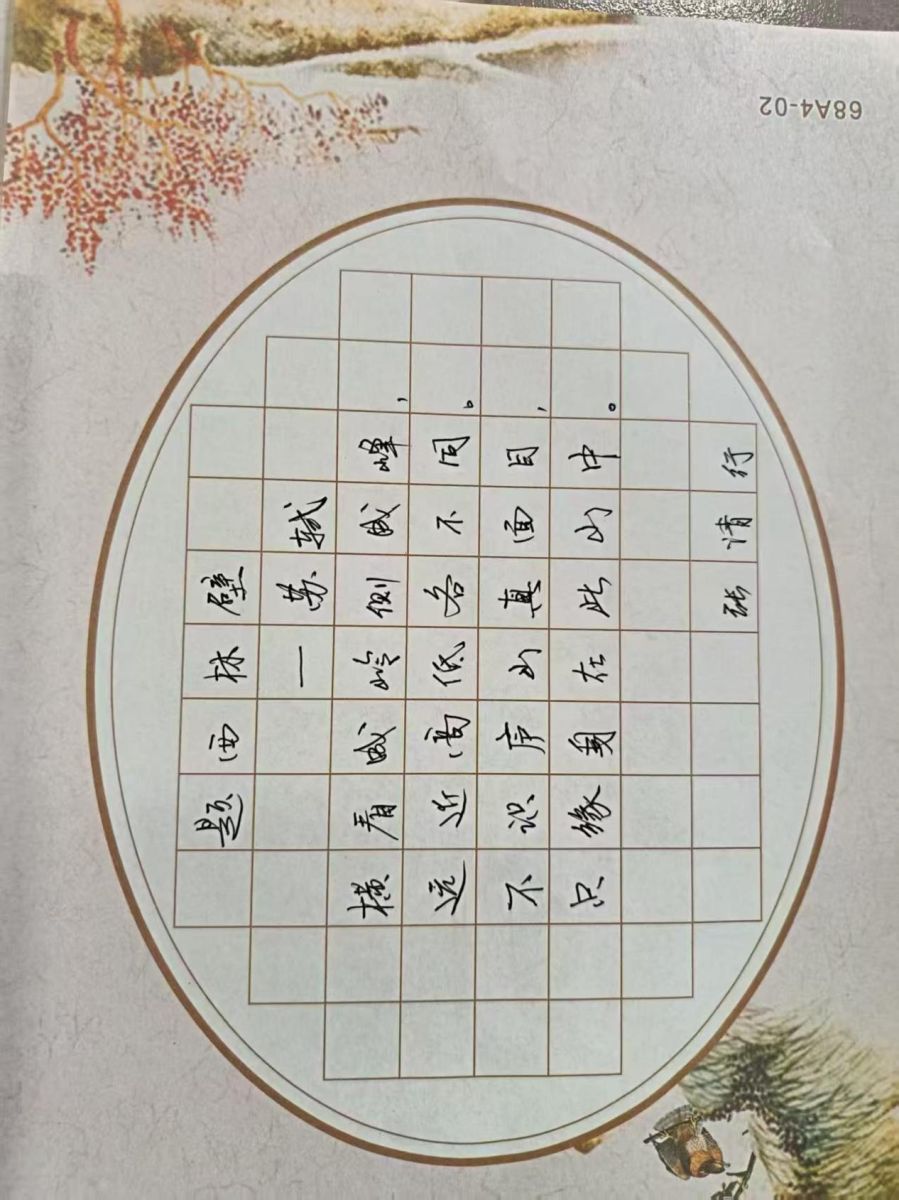 68A4-02
题西林壁
—苏轼
横看成岭侧成峰，
远近高低各不同。
不识庐山真面目，
只缘身在此山中。
张请行